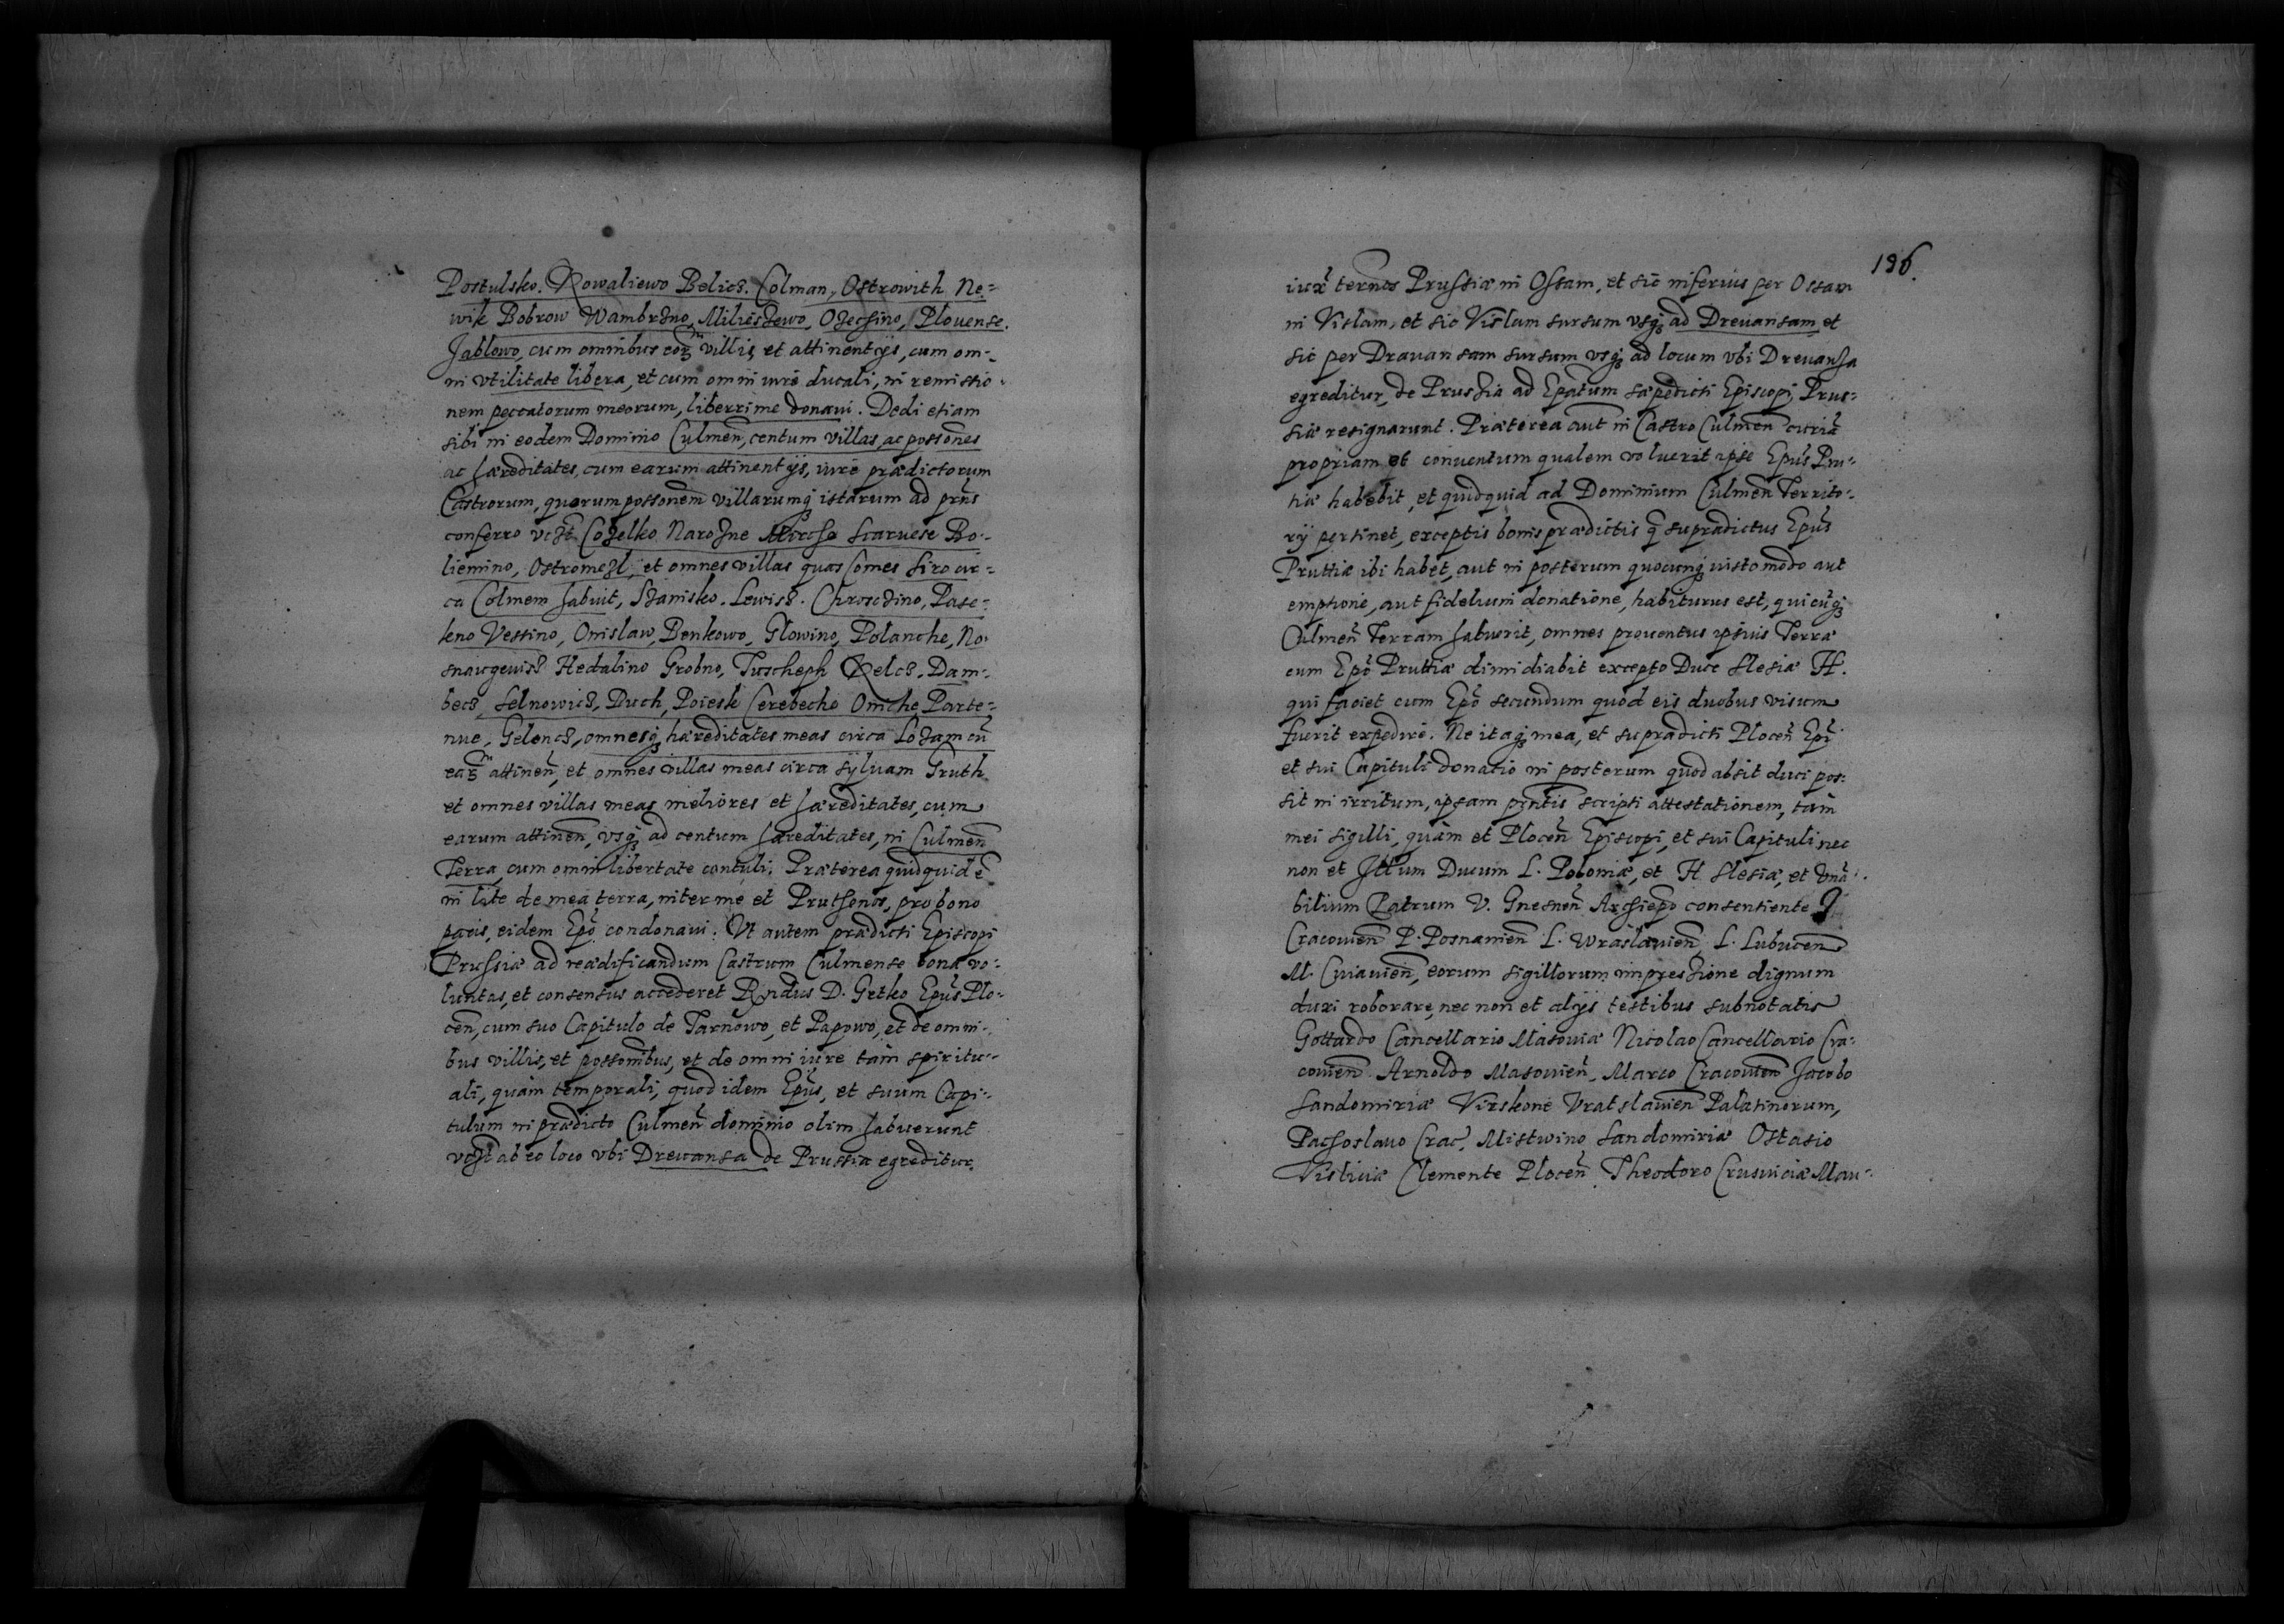 Postulsko. Kowaliewo Belics. Colman, Ostrowith Ne-
wik Bobrow Wambrzno, Milieszewo, Ozechino, Plouense.
Jablowo, cum omnibus eorꝫ villis et attinentijs, cum om-
ni vtilitate libera, et cum omni iure ducali, in remissio-
nem peccatorum meorum, liberrime donaui. Dedi etiam
sibi in eodem Dominio Culmeñ, centum villas, ac possones
ac hæreditates, cum earum attinentijs, iure prædictorum
Castrorum, quorum possonem villarumqꝫ istarum ad prñs
conferro vczt Cozelko Narozne Mircho Scaruese Bo-
liemino, Ostromezl, et omnes villas quas Comes Siro cir-
ca Colmem habuit, Szamisko. Lewisz. Chroszino, Pase-
kno Vestino, Onislaw, Benkowo, Glowino, Polanche, No-
snaugeuisz Hedalino Grobno, Tuscheph Relcz. Dam-
becz, Selnowicz, Duch, Poiesk Cerebecho Omche Parte-
nue, Gelencz, omnesqꝫ hæreditates meas circa Lozam cū
earꝫ attineñ, et omnes villas meas circa syluam Gruth
et omnes villas meas meliores et hæreditates, cum
earum attineñ, vsqꝫ ad centum hæreditates, in Culmeñ
Terra, cum omni libertate contuli. Præterea quidquid ē
in lite de mea terra, inter me et Pruthenos, pro bono
pacis, eidem Epõ condonaui. Vt autem prædicti Episcopi
Prussiæ ad reædificandum Castrum Culmense bona vo-
luntas, et consensus accederet Rndus D. Getko Epũs Plo-
ceñ, cum suo Capitulo de Tarnowo, et Papowo, et de omni-
bus villis, et possonibus, et de omni iure tam spiritu-
ali, quàm temporali, quod idem Epũs, et suum Capi-
tulum in prædicto Culmeñ dominio olim habuerunt
vczt ab eo loco vbi Dreuansa de Prussia egreditur,
196.
iux̃ ternos Prussiæ in Ossam, et sic inferius per Ossam
in Vislam, et sic Vislam sursum vsqꝫ ad Dreuansam, et
sic per Drauansam sursum vsqꝫ ad locum vbi Dreuansa
egreditur, de Prussia ad Epatum sæpedicti Episcopi Prus-
siæ resignarunt. Præterea aut in Castro Culmen curiã
propriam et conuentum qualem voluerit ipse Epũs Pru-
tiæ habebit, et quidquid ad Dominium Culmeñ Territo-
rij pertinet, exceptis bonis prædictis q̃ supradictus Epũs
Pruttiæ ibi habet, aut in posterum quocunqꝫ iusto modo aut
emptione, aut fidelium donatione, habiturus est, quicũqꝫ
Culmeñ Terram habuerit, omnes prouentus ipsius Terræ
cum Epõ Pruttiæ dimidiabit excepto Duce Slesiæ H.
qui faciet cum Epõ secundum quod eis duobus visum
fuerit expedire. Ne itaqꝫ mea, et supradicti Ploceñ Epi
et sui Capituli donatio in posterum quod absit duci pos-
sit in irritum, ipsam pr̃ntis scripti attestationem, tam
mei sigilli, quàm et Ploceñ Episcopi, et sui Capituli nec
non et Illium Ducum L. Poloniæ, et H Slesiæ, et Vnã-
bilium Patrum V. Gnesneñ Archiepo consentiente J
Cracouieñ P. Posnanieñ L. Wraslauieñ L. Lubuceñ
M. Cuiauieñ, eorum sigillorum impressione dignum
duxi roborare, nec non et alijs testibus subnotatis
Gottardo Cancellario Masouiæ Nicolao Cancellario Cra-
couieñ Arnoldo Masouieñ, Marco Cracouieñ Jacobo
Sandomiriæ Virskone Vratslauieñ Palatinorum,
Pachoslauo Crac, Mistwino Sandomiriæ Ostasio
Visliciæ Clemente Ploceñ Theodoro Crusuiciæ Mau-